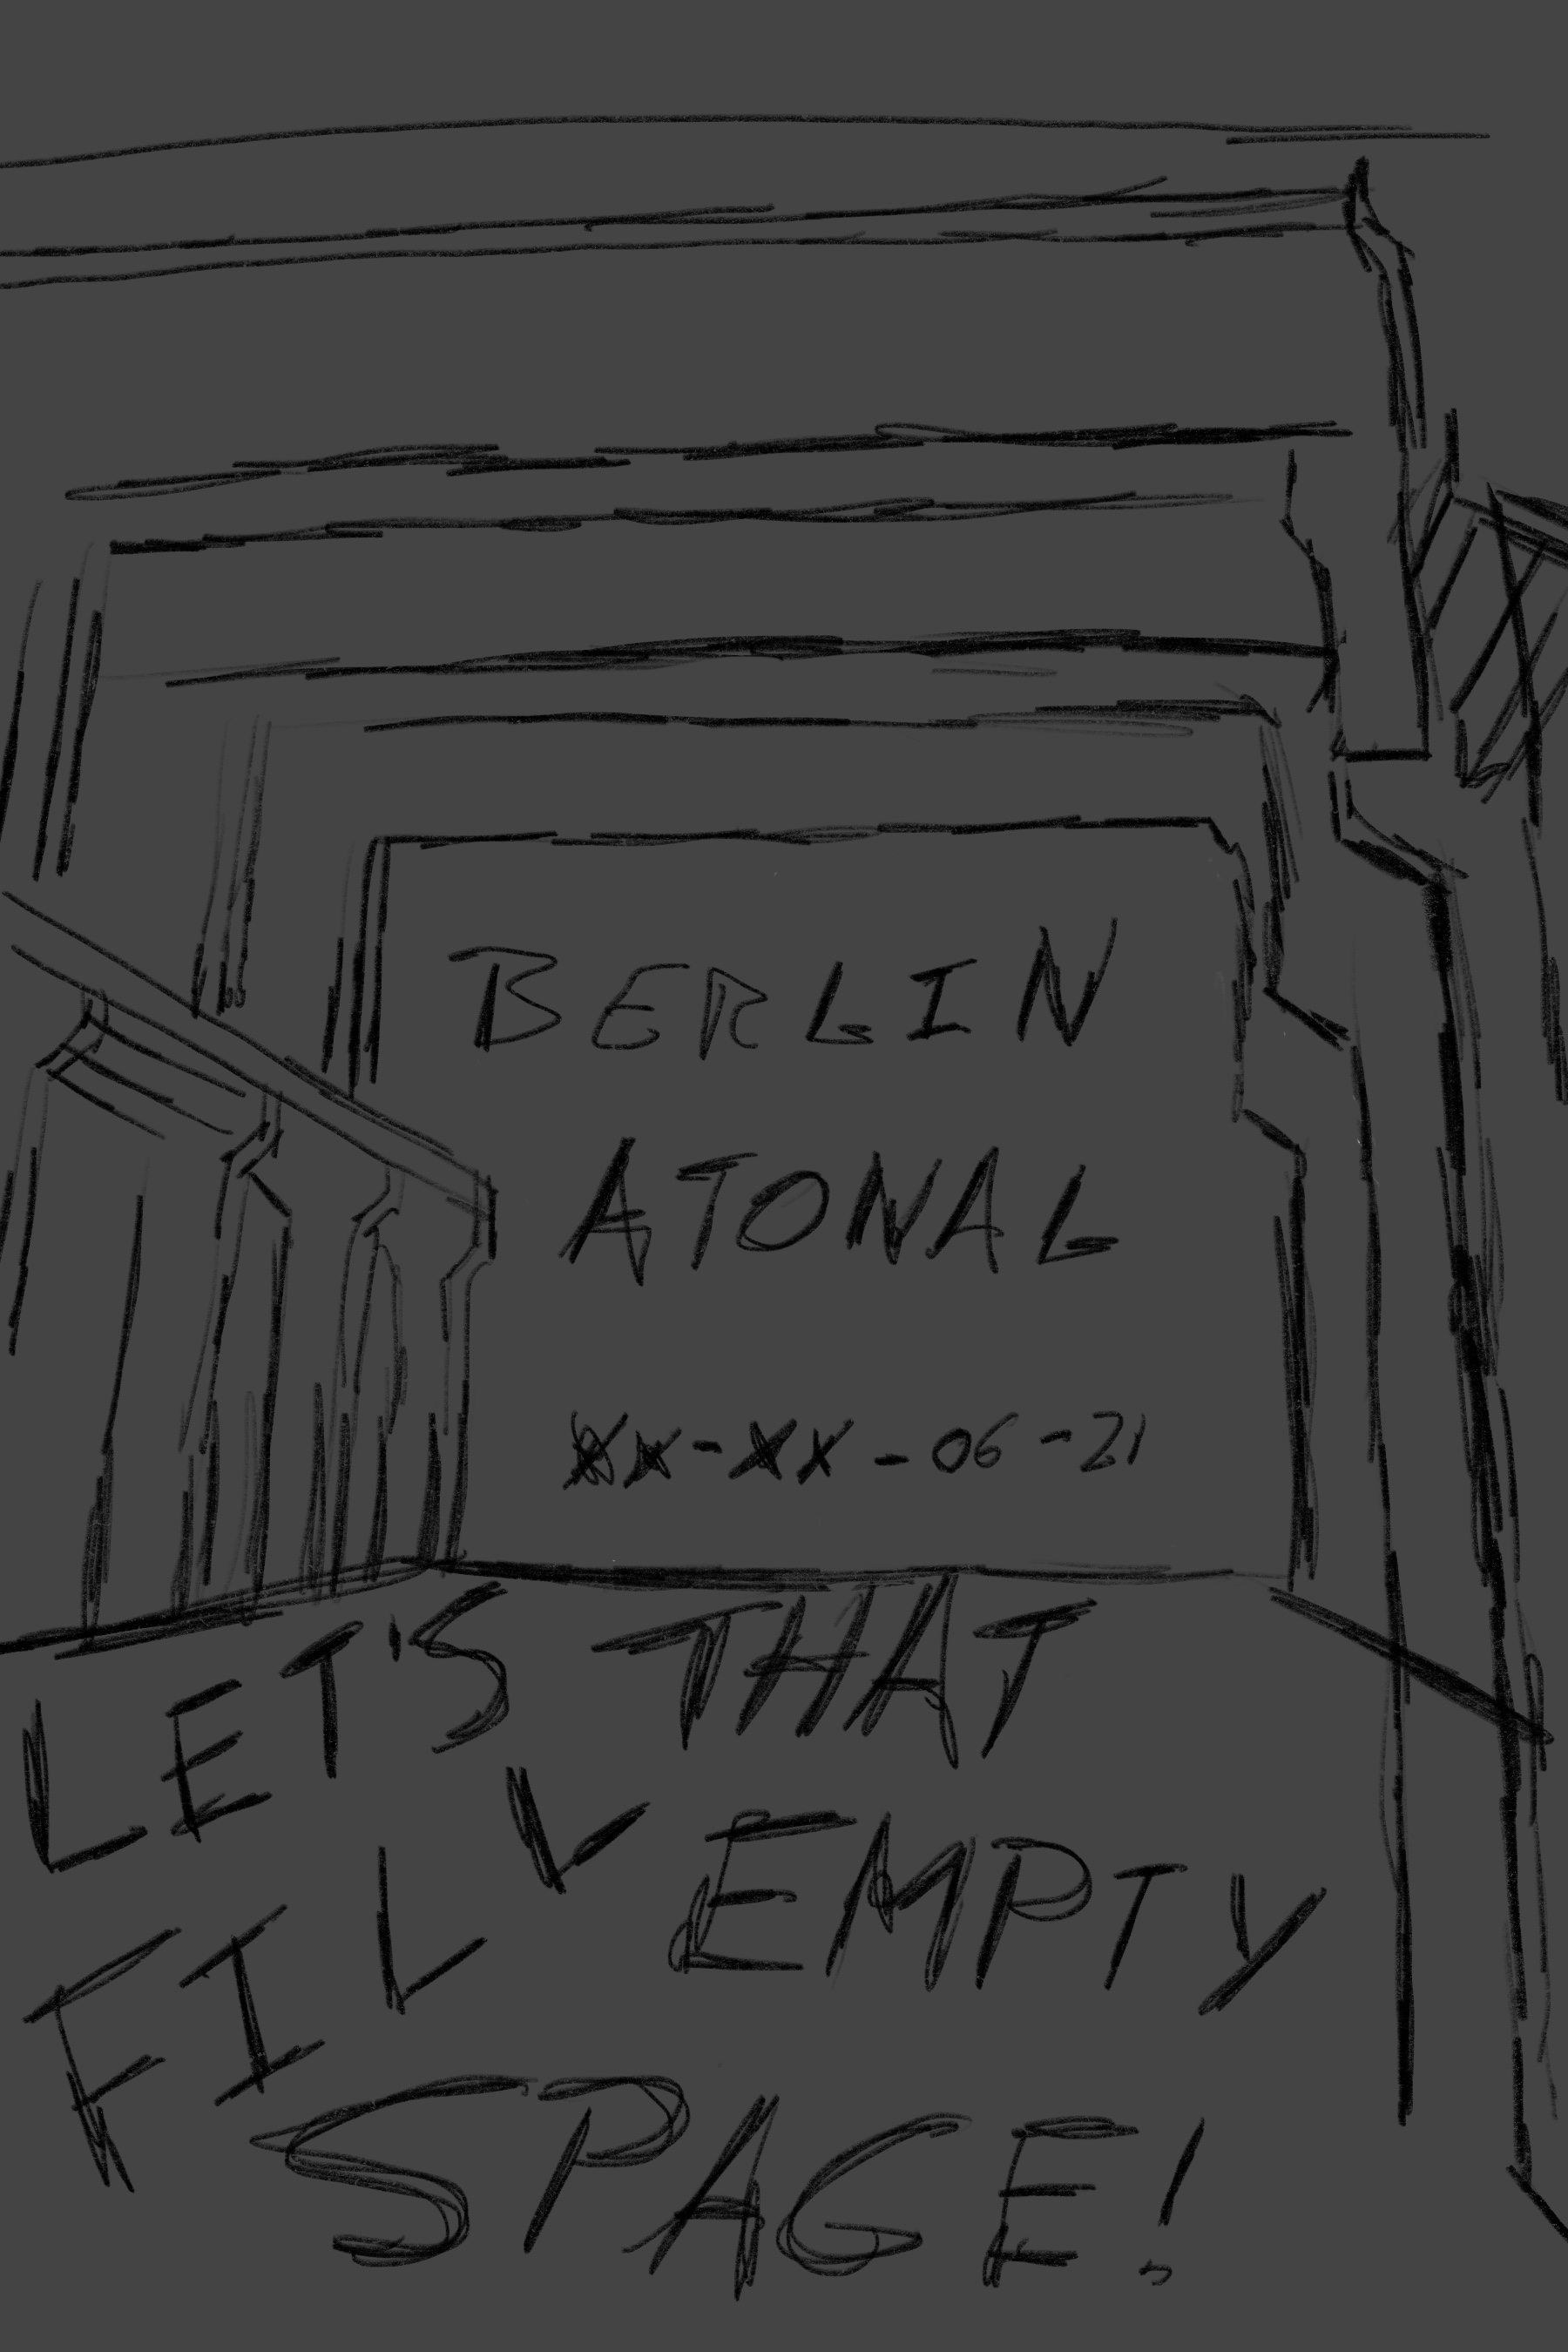 BERLIN
ATONAL
XX-XX-06-21
LET'S THAT
FILL EMPTY
SPACE!